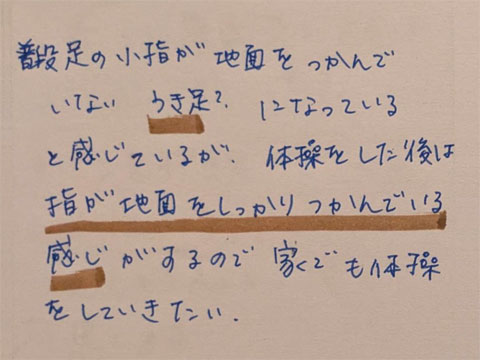 普段足の小指が地面をつかんで
いない うき足? になっている
と感じているが、体操をした後は
指が地面をしっかりつかんでいる
感じがするので家でも体操
をしていきたい.